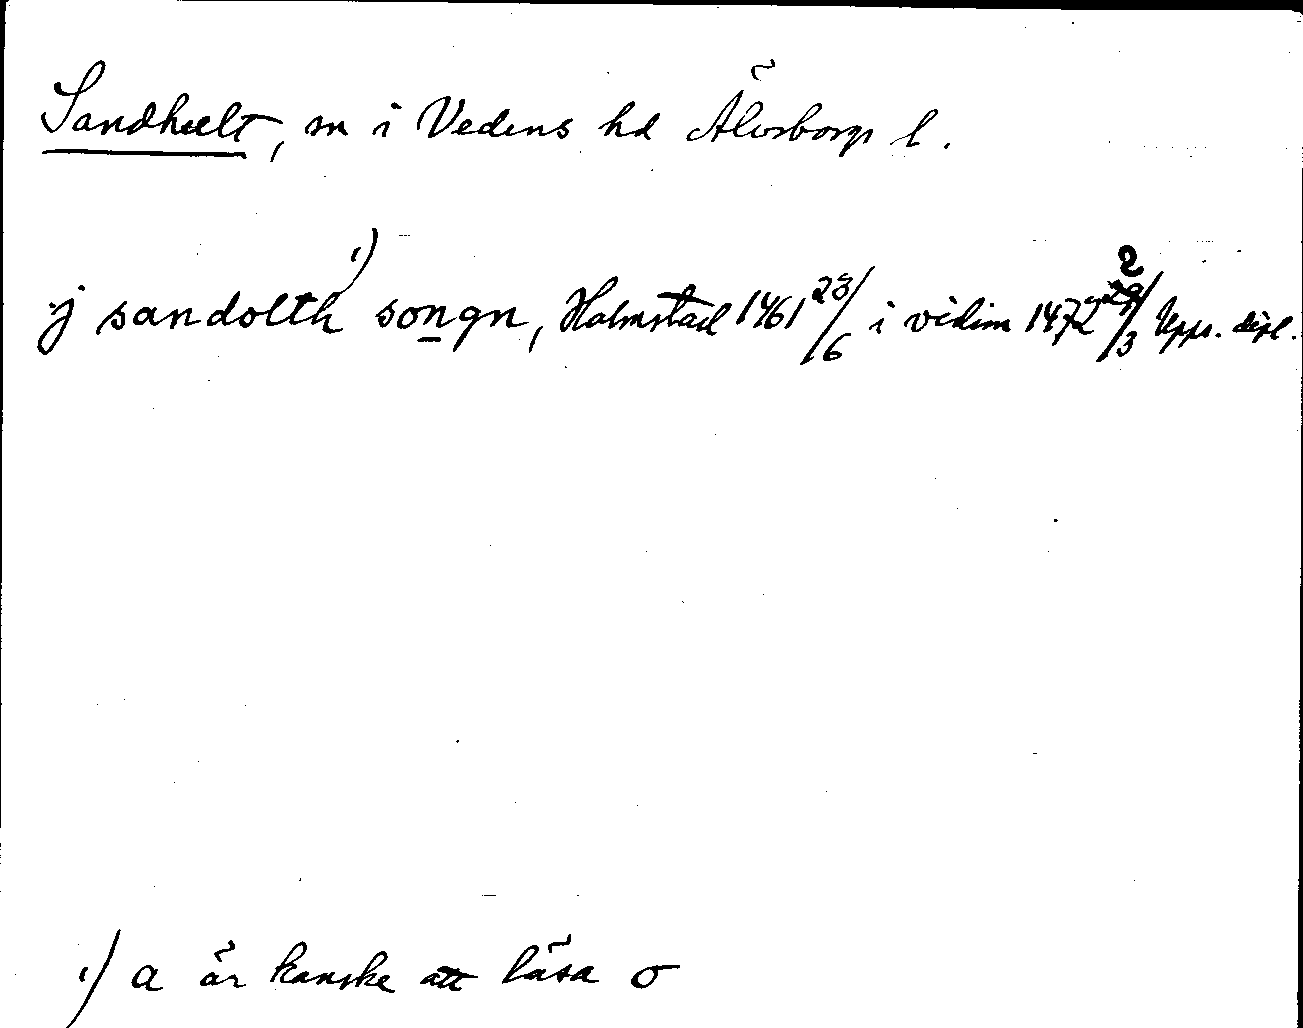 Sandhult, sn i Vedens hd Älvsborgs l.
j sandolth 1) songn, Halmstad 1461 23/6 i vidim 1472 2/3 Upps. dipl.
1) a är kanske att läsa o